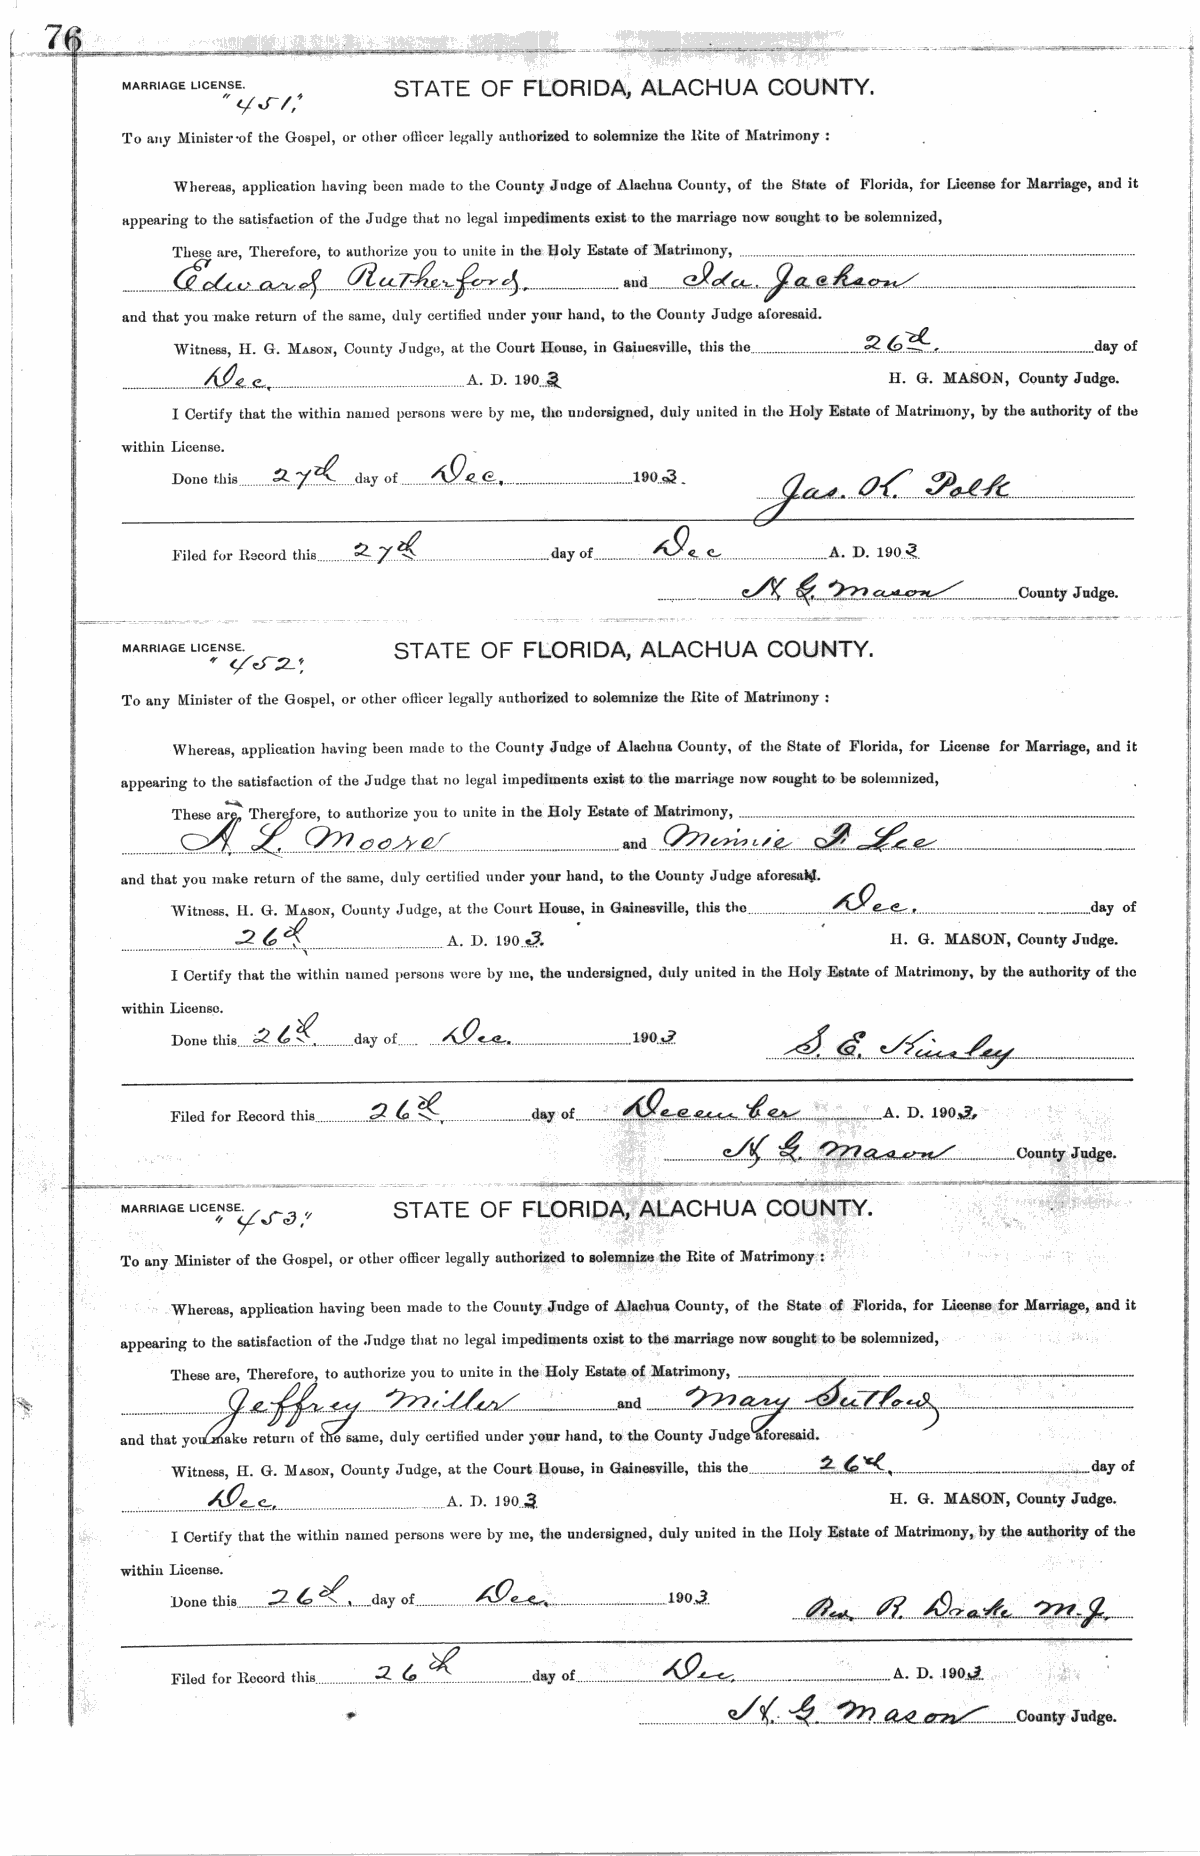 76
MARRIAGE LICENSE. STATE OF FLORIDA, ALACHUA COUNTY.
"451."
To any Minister of the Gospel, or other officer legally authorized to solemnize the Rite of Matrimony :
Whereas, application having been made to the County Judge of Alachua County, of the State of Florida, for License for Marriage, and it
appearing to the satisfaction of the Judge that no legal impediments exist to the marriage now sought to be solemnized,
These are, Therefore, to authorize you to unite in the Holy Estate of Matrimony,
Edward Rutherford. and Ida. Jackson
and that you make return of the same, duly certified under your hand, to the County Judge aforesaid.
Witness, H. G. MASON, County Judge, at the Court House, in Gainesville, this the 26th. day of
Dec. A. D. 1903 H. G. MASON, County Judge.
I Certify that the within named persons were by me, the undersigned, duly united in the Holy Estate of Matrimony, by the authority of the
within License.
Done this 27th day of Dec. 1903. Jas. K. Polk
Filed for Record this 27th day of Dec A. D. 1903
H G. Mason County Judge.
MARRIAGE LICENSE. STATE OF FLORIDA, ALACHUA COUNTY.
"452."
To any Minister of the Gospel, or other officer legally authorized to solemnize the Rite of Matrimony :
Whereas, application having been made to the County Judge of Alachua County, of the State of Florida, for License for Marriage, and it
appearing to the satisfaction of the Judge that no legal impediments exist to the marriage now sought to be solemnized,
These are, Therefore, to authorize you to unite in the Holy Estate of Matrimony,
A. L. Moore and Minnie F. Lee
and that you make return of the same, duly certified under your hand, to the County Judge aforesaid.
Witness, H. G. MASON, County Judge, at the Court House, in Gainesville, this the Dec. day of
26th. A. D. 1903. H. G. MASON, County Judge.
I Certify that the within named persons were by me, the undersigned, duly united in the Holy Estate of Matrimony, by the authority of the
within License.
Done this 26th. day of Dec. 1903 S. E. Kinsley
Filed for Record this 26th. day of December A. D. 1903.
H G. Mason County Judge.
MARRIAGE LICENSE. STATE OF FLORIDA, ALACHUA COUNTY.
"453."
To any Minister of the Gospel, or other officer legally authorized to solemnize the Rite of Matrimony :
Whereas, application having been made to the County Judge of Alachua County, of the State of Florida, for License for Marriage, and it
appearing to the satisfaction of the Judge that no legal impediments exist to the marriage now sought to be solemnized,
These are, Therefore, to authorize you to unite in the Holy Estate of Matrimony,
Jeffrey Miller and Mary Sutlow
and that you make return of the same, duly certified under your hand, to the County Judge aforesaid.
Witness, H. G. MASON, County Judge, at the Court House, in Gainesville, this the 26th. day of
Dec. A. D. 1903 H. G. MASON, County Judge.
I Certify that the within named persons were by me, the undersigned, duly united in the Holy Estate of Matrimony, by the authority of the
within License.
Done this 26th. day of Dec. 1903 Rev. R. Drake M. G.
Filed for Record this 26th day of Dec. A. D. 1903
H. G. Mason County Judge.